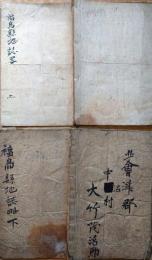 福島縣地誌畧
上
福島縣地誌略下
北會津郡
中■村
大竹